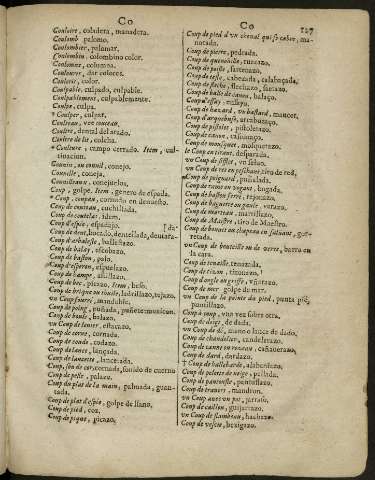 Co
Couloire, coladera, manadera.
Coulomb palomo.
Coulombier, palomar.
Coulombin, colombino color.
Coulomne, coluna.
Coulourer, dar colores.
Couleur, color.
Coulpable, culpado, culpable.
Coulpablement, culpablemente.
Coulpe, culpa.
* Coulper, culpar.
Couteau, vee
Coultre, dental del arado.
Coultre de lict
* Coulture, campo cerrado. Item, cul-
tivacion.
Connin, ou connil, conejo.
Connille, coneja.
Connilleau, conejuelo.
Coup, golpe. Item, genero de espada.
* Coup, coupau, cornudo en denuesto.
Coup de couteau, cuchillada.
Coup de coutelas, idem.
Coup d'espée, espadajo.
Coup de dent, bocado, dentellada, dentera-
Coup d'arbaleste, ballestazo.
Coup de balay, escobazo.
Coup de baston, palo.
Coup d'esperon, espolazo.
Coup de hampe, astillazo.
Coup de bec, picazo, Item, beso.
Coup de brique ou thuille, ladrillazo, tejazo.
vn Coup fourré, mandoble.
Coup de poing, puñada, puñete, moxicon.
Coup de boule, bolazo.
vn Coup de leuier, estacazo.
Coup de corne, cornada.
Coup de coude, codazo.
Coup de lance, lançada.
Coup de lancette, lancetada.
Coup, son de cor, cornada, sonido de cuerno
Coup de pelle, palazo.
Coup du plat de la main, palmada, guan-
tada.
Coup de plat d'espée, golpe de llano.
Coup de pied, coz.
Coup de pique, picazo.
Co
127
Coup de pied d'un cheual qui se cabre, ma-
notada.
Coup de pierre, pedrada.
Coup de quenouille, ruecazo.
Coup de poesle, sartenazo.
Coup de teste, cabeçada, calabaçada.
Coup de flesche, flechazo, saetazo.
Coup de balle de canon, balaço.
Coup d'essay, ensayo.
Coup de hazard, vn bastard, mancer.
Coup d'arquebuse, arcabuzaço.
Coup de pistolet, pistoletazo.
Coup de canon, cañonazo.
Coup de mousquet, mosquetazo.
le Coup en tirant, desparada.
vn Coup de sifflet, vn silvo.
vn Coup de rets en peschant, tiro de red.
Coup de poignard, puñalada.
Coup de rame ou vogant, bogada.
Coup de baston ferré, retonazo.
Coup de baguette ou gaule, varazo.
Coup de marteau, martillazo.
Coup de Maistre, tiro de Maestro.
Coup de bonnet ou chapeau en saluant, gor-
retada.
vn Coup de bouteille ou de verre, burro en
la cara.
Coup de tenaille, tenazada.
Coup de tizon, tizonazo.
Coup d'ongle ou griffe, vñarazo.
Coup de mer, golpe de mar.
vn Coup de la pointe du pied, punta pié,
pantillazo.
Coup à coup, vna vez sobre otra.
Coup de doigt, de dada.
vn Coup de dé, mano o lance de dado.
Coup de chandelier, candelerazo.
Coup de canne ou roseau, cañaverazo.
Coup de dard, dardazo.
† Coup de hallebarde, alabardazo.
Coup de pelotte de neige, pellada.
Coup de pantoufle, pantuflazo.
Coup de trauers, mandron.
vn Coup auec vn pot, jarrazo.
Coup de caillou, guijarrazo.
vn Coup de flambeau, hachazo.
Coup de vessie, bexigazo.